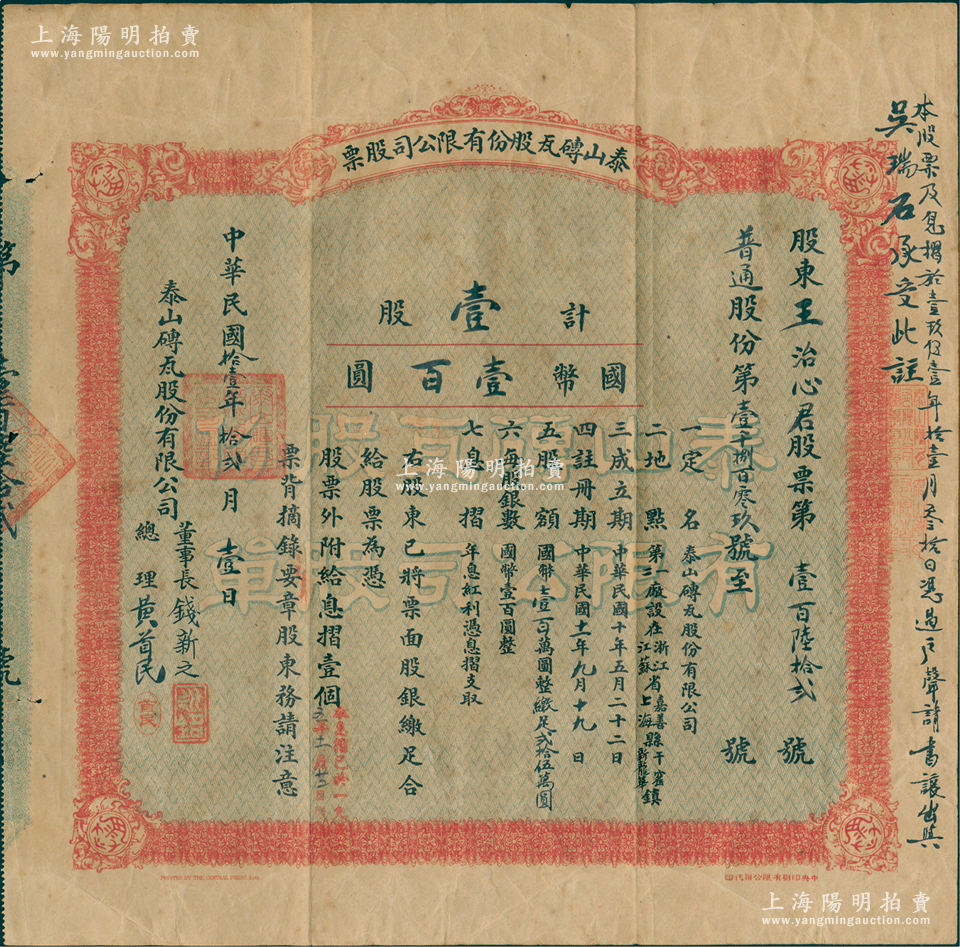 上海陽明拍賣
www.yangmingauction.com
泰山磚瓦股份有限公司股票
本股票及息摺於壹玖伍壹年拾壹月叁拾日憑過戶聲請書讓出與
吳瑞石承受此註
股東王治心君股票第壹百陸拾弍號
普通股份第壹千捌百零玖號至 號
計壹股
國幣壹百圓
一定名 泰山磚瓦股份有限公司
二地點 第一廠設在浙江省嘉善縣干窰鎮
江蘇省上海縣新龍華鎮
三成立期 中華民國十年五月二十二日
四註冊期 中華民國十一年九月十九日
五股額 國幣壹百萬圓整繳足弍拾伍萬圓
六每股銀數 國幣壹百圓整
七息摺 年息紅利憑息摺支取
右股東已將票面股銀繳足合
給股票為憑
股票外附給息摺壹個
票背摘錄要章股東務請注意
中華民國拾壹年拾弍月壹日
泰山磚瓦股份有限公司
董事長錢新之
總理黃首民
泰山磚瓦股份
有限公司股單
第
號
上海陽明拍賣
www.yangmingauction.com
PRINTED BY THE CENTRAL PRESS LTD.
中央印刷有限公司代印
上海陽明拍賣
www.yangmingauction.com